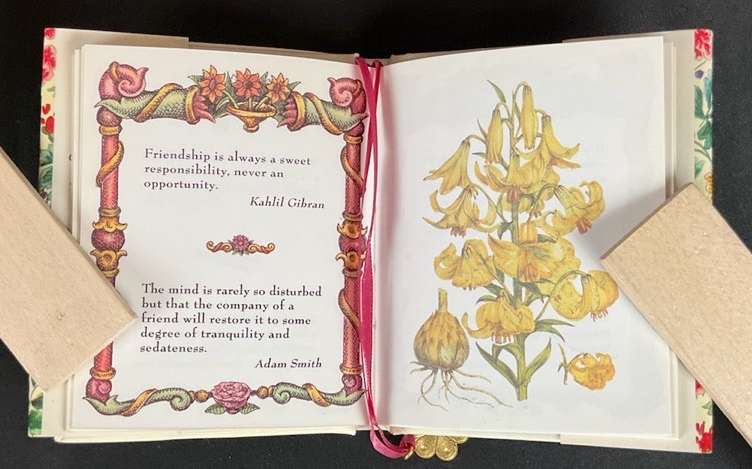 Friendship is always a sweet
responsibility, never an
opportunity.
Kahlil Gibran
The mind is rarely so disturbed
but that the company of a
friend will restore it to some
degree of tranquility and
sedateness.
Adam Smith